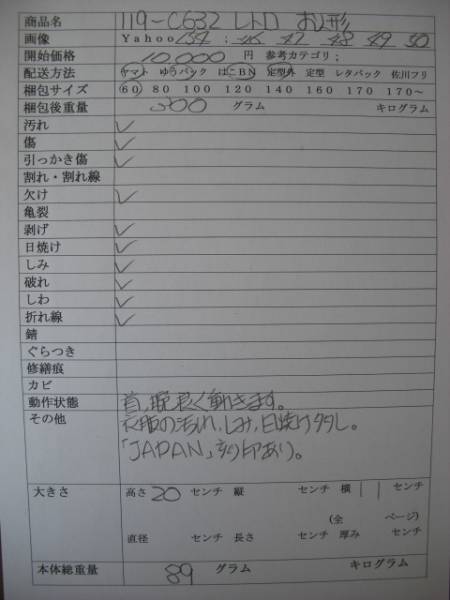 商品名 119-C632 レトロ お人形
画像 Yahoo 134 ; 46 47 48 49 50
開始価格 10,000 円 参考カテゴリ;
配送方法 ヤマト ゆうパック はこBN 定型外 定型 レタパック 佐川フリ
梱包サイズ 60 80 100 120 140 160 170 170～
梱包後重量 300 グラム キログラム
汚れ ✓
傷 ✓
引っかき傷 ✓
割れ・割れ線
欠け ✓
亀裂
剥げ ✓
日焼け ✓
しみ ✓
破れ ✓
しわ ✓
折れ線 ✓
錆
ぐらつき
修繕痕
カビ
動作状態 首、腕、良く動きます。
その他 衣服の汚れ、しみ、日焼け多し。
「JAPAN」刻印あり。
大きさ 高さ 20 センチ 縦 センチ 横 11 センチ
(全 ページ)
直径 センチ 長さ センチ 厚み センチ
本体総重量 89 グラム キログラム